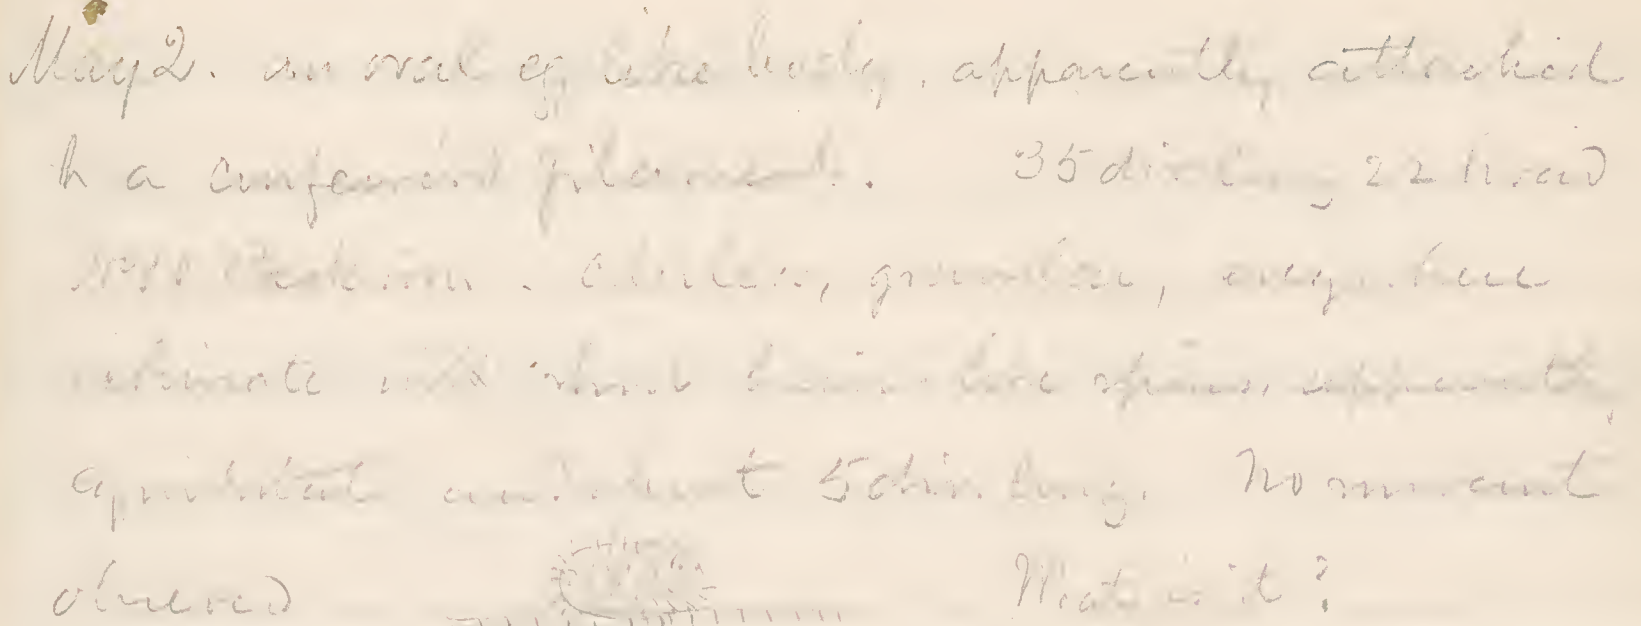 May 2. an oval egg like body, apparently attached
to a confervoid filament. 35 div long 22 broad
granular, everywhere
echinate with short like spines, apparently
and about 5 div. long. No movement
observed What is it?